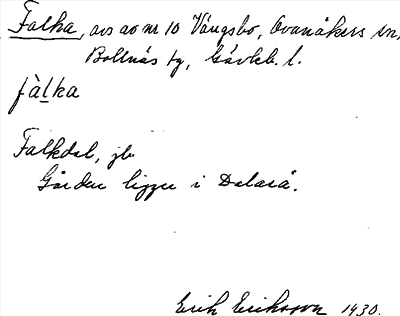 Falka, avs av nr 10 Vängsbo, Ovanåkers sn,
Bollnäs tg, Gävleb. l.
fàlka
Falkdal, jb.
Gården ligger i Dalarå.
Erik Eriksson 1930.